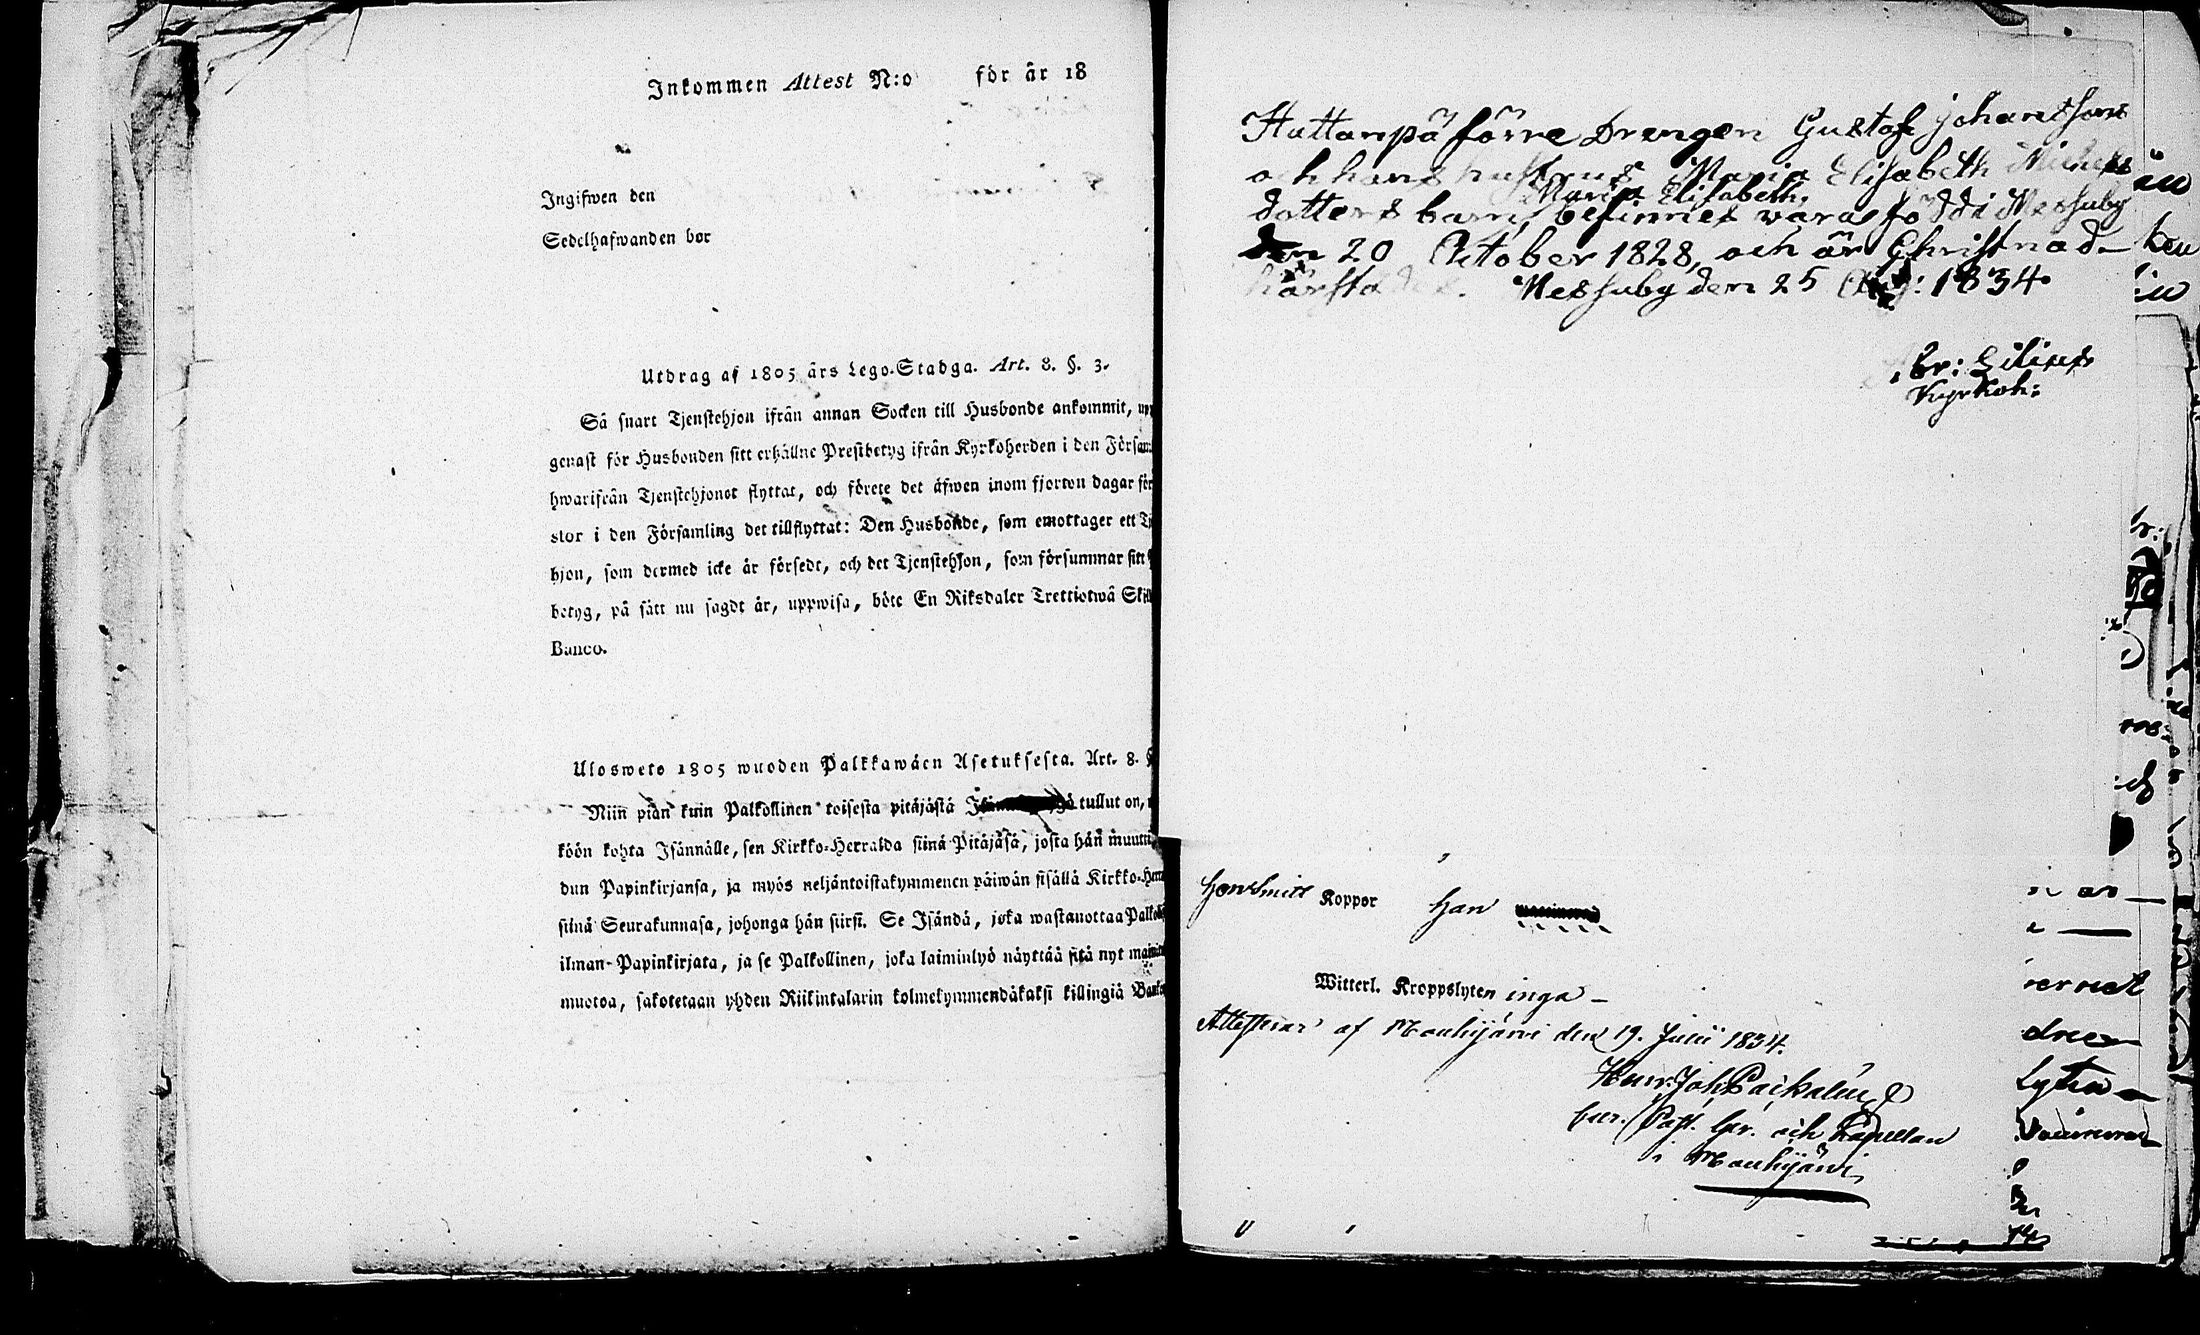 Inkommen Attest N:o för år 18
Ingifwen den
Sedelhafwanden bor
Utdrag af 1805 års Lego-Stadga. Art. 8. §. 3.
Så snart Tjenstehjon ifrån annan Socken till Husbonde ankommit, upp
genast för Husbonden sitt erhållne Prestbetyg ifrån Kyrkoherden i den Försam
hwarifrån Tjenstehjonet flyttat, och förete det äfwen inom fjorton dagar för
stor i den Församling det tillflyttat: Den Husbonde, som emottager ett Tj
hjon, som dermed icke är försedt, och det Tjenstehjon, som försummar sitt
betyg, på sätt nu sagdt är, uppwisa, böte En Riksdaler Trettiotwå Skil
Banco.
Ulosweto 1805 wuoden Palkkawäen Asetuksesta. Art. 8. §
Niin pian kuin Palkollinen toisesta pitäjästä tullut on,
köön kohta Isännälle, sen Kirkko-Herralda siinä Pitäjäsä, josta hän muutti
dun Papinkirjansa, ja myös neljäntoistakymmenen päiwän sisällä Kirkko-Herra
siinä Seurakunnasa, johonga hän siirsi. Se Isändä, joka wastanottaa Palkol
ilman Papinkirjata, ja se Palkollinen, joka laiminlyö näyttää sitä nyt mainit
muotoa, sakotetaan yhden Riikintalarin kolmekymmendäkaksi killingiä Banko
Huttanpä förre Drengen Gustaf Johansons
och hans hustrus Maria Elisabeth Michels
Maria Elisabeth,
dotters barn, befinnes wara född i Messuby
den 20 October 1828, och är Christnad
härstädes. Messuby den 25 Aug: 1834
Abr: Lilius
Kyrkoh:
Koppor han
Witterl. Kroppslyten inga
Attesterar af Mouhijärvi den 19. Julii 1834.
Henr. Joh. Paikalin
Past. och Kapellan
i Mouhijärvi